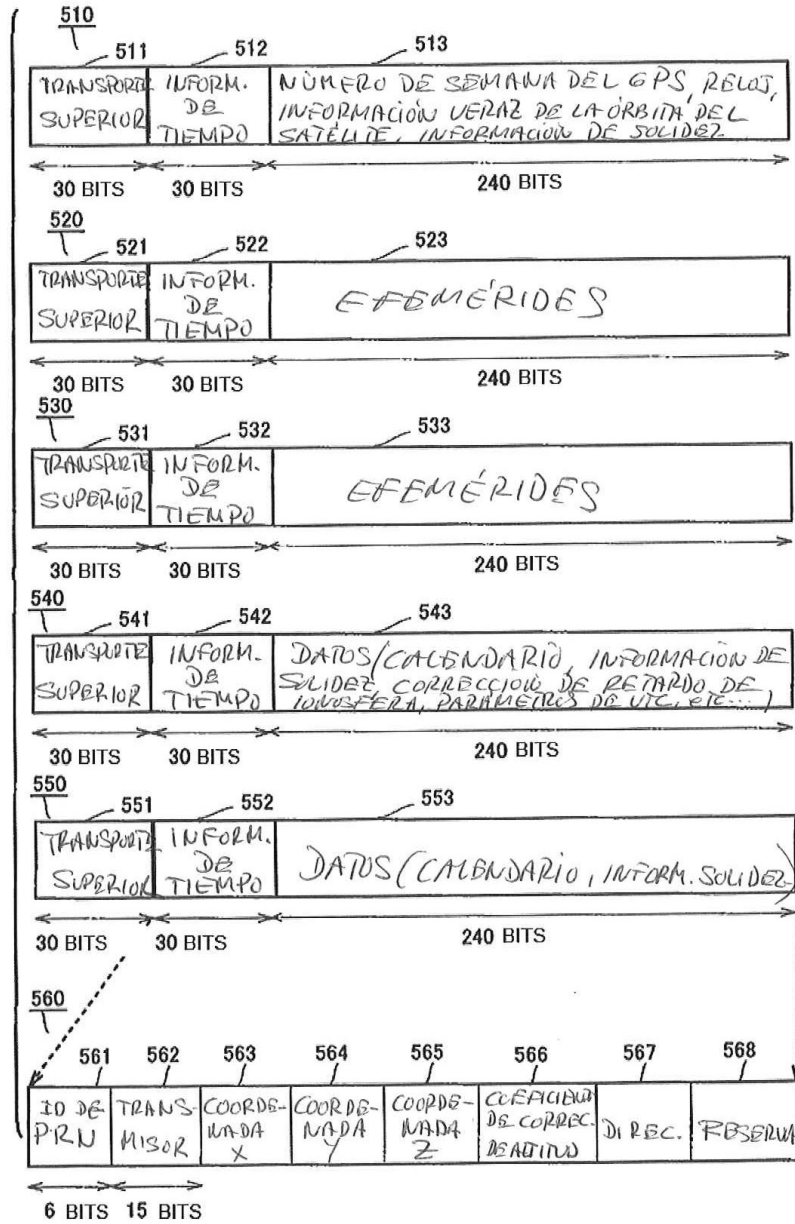 510
511 512 513
TRANSPORTE SUPERIOR
INFORM. DE TIEMPO
NÚMERO DE SEMANA DEL GPS, RELOJ,
INFORMACIÓN VERAZ DE LA ÓRBITA DEL
SATÉLITE, INFORMACIÓN DE SOLIDEZ
30 BITS 30 BITS 240 BITS
520
521 522 523
TRANSPORTE SUPERIOR
INFORM. DE TIEMPO
EFEMÉRIDES
30 BITS 30 BITS 240 BITS
530
531 532 533
TRANSPORTE SUPERIOR
INFORM. DE TIEMPO
EFEMÉRIDES
30 BITS 30 BITS 240 BITS
540
541 542 543
TRANSPORTE SUPERIOR
INFORM. DE TIEMPO
DATOS (CALENDARIO, INFORMACIÓN DE
SOLIDEZ, CORRECCIÓN DE RETARDO DE
IONOSFERA, PARÁMETROS DE UTC, etc...)
30 BITS 30 BITS 240 BITS
550
551 552 553
TRANSPORTE SUPERIOR
INFORM. DE TIEMPO
DATOS (CALENDARIO, INFORM. SOLIDEZ)
30 BITS 30 BITS 240 BITS
560
561 562 563 564 565 566 567 568
ID DE PRN
TRANS-
MISOR
COORDE-
NADA
X
COORDE-
NADA
Y
COORDE-
NADA
Z
COEFICIENT
DE CORREC.
DE ALTITUD
DIREC.
RESERVA
6 BITS 15 BITS